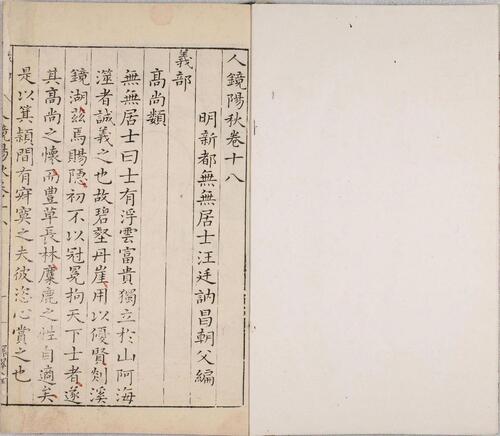 人鏡陽秋卷十八
明新都無無居士汪廷訥昌朝父編
義部
高尚類
無無居士曰士有浮雲富貴獨立於山阿海
澨者誠義之也故碧壑丹崖用以優賢剡溪
鏡湖茲焉賜隱初不以冠冕拘天下士者遂
其高尚之懷而豐草長林麋鹿之性自適矣
是以箕潁間有寂寞之夫彼恣心賞之也